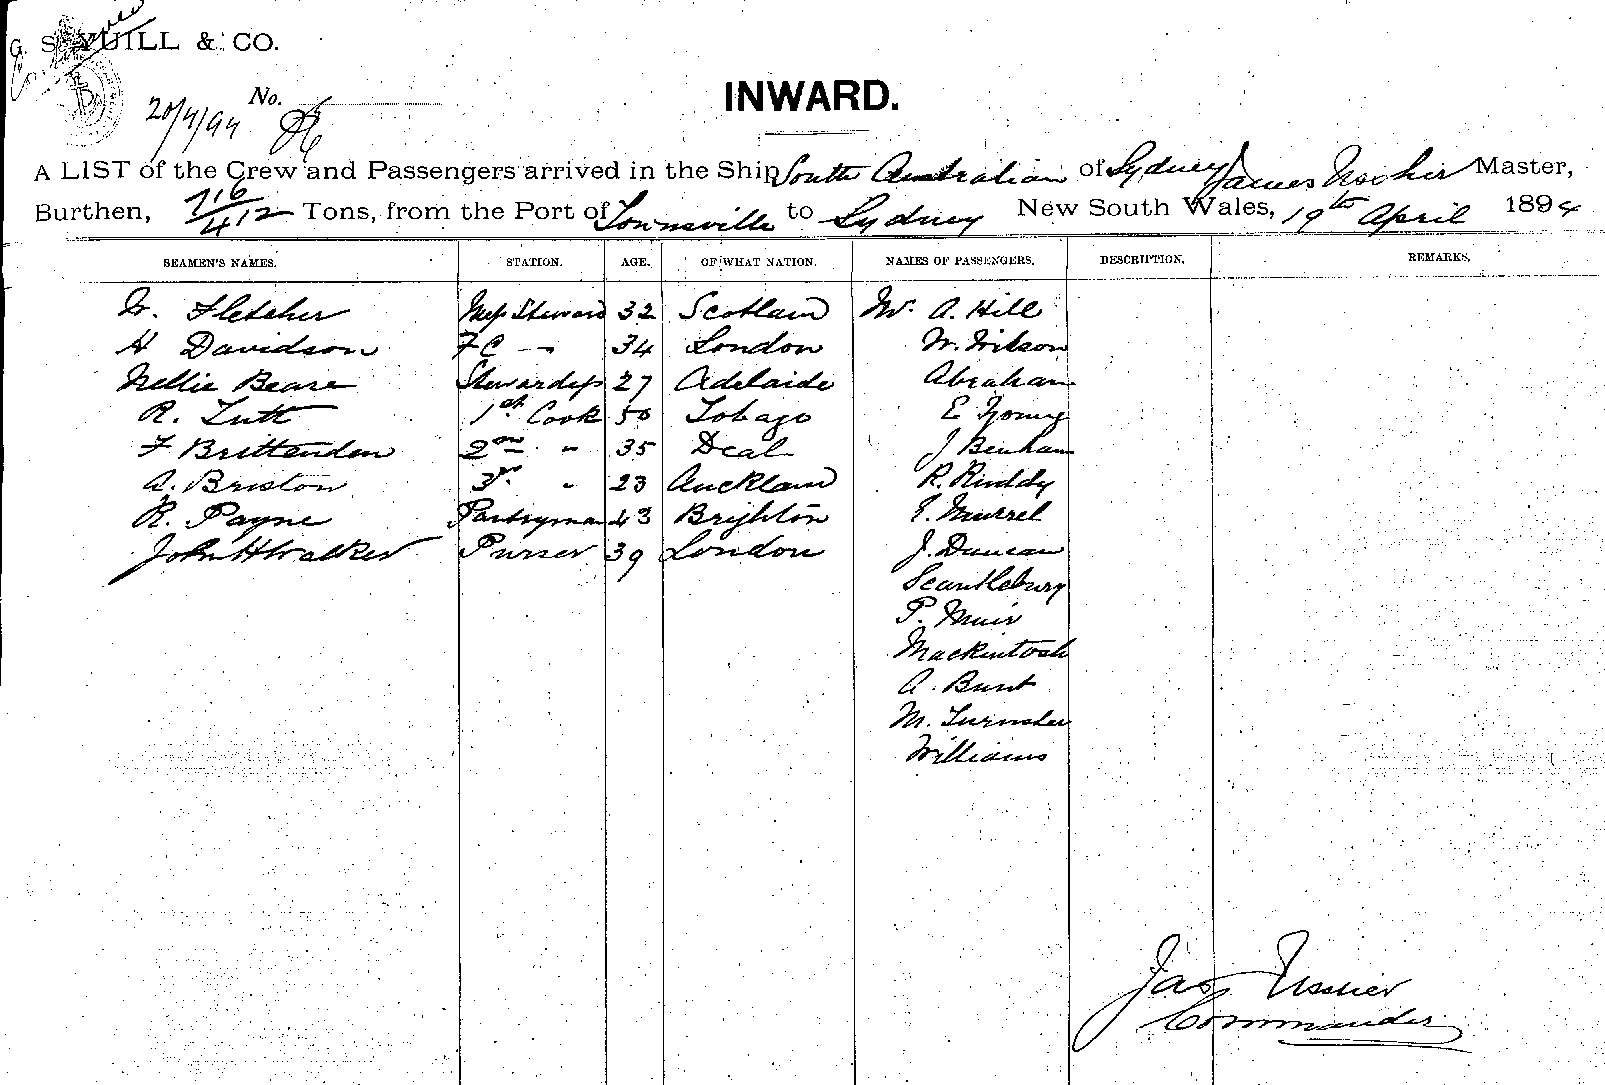 G. S. YUILL & CO.
No.
20/4/94
INWARD.
A LIST of the Crew and Passengers arrived in the Ship South Australian of Sydney James Ussher Master,
Burthen, 716/412 Tons, from the Port of Townsville to Sydney New South Wales, 19th April 1894
SEAMEN'S NAMES. STATION. AGE. OF WHAT NATION. NAMES OF PASSENGERS. DESCRIPTION. REMARKS.
W. Fletcher Mess Steward 32 Scotland Mr. A. Hill
H Davidson FC " 34 London W. Wilson
Nellie Beare Stewardess 27 Adelaide Abraham
R. Tutt 1st Cook 50 Tobago E Young
F Brittenden 2nd " 35 Deal J Benham
A. Briston 3rd " 23 Aucklan R. Ruddy
R. Payne Pantryman 43 Brighton E. Murrel
John H Walker Purser 39 London J. Duncan
Scantlebury
P. Muir
Mackintosh
A. Bunt
M.
Williams
Jas Ussher
Commander